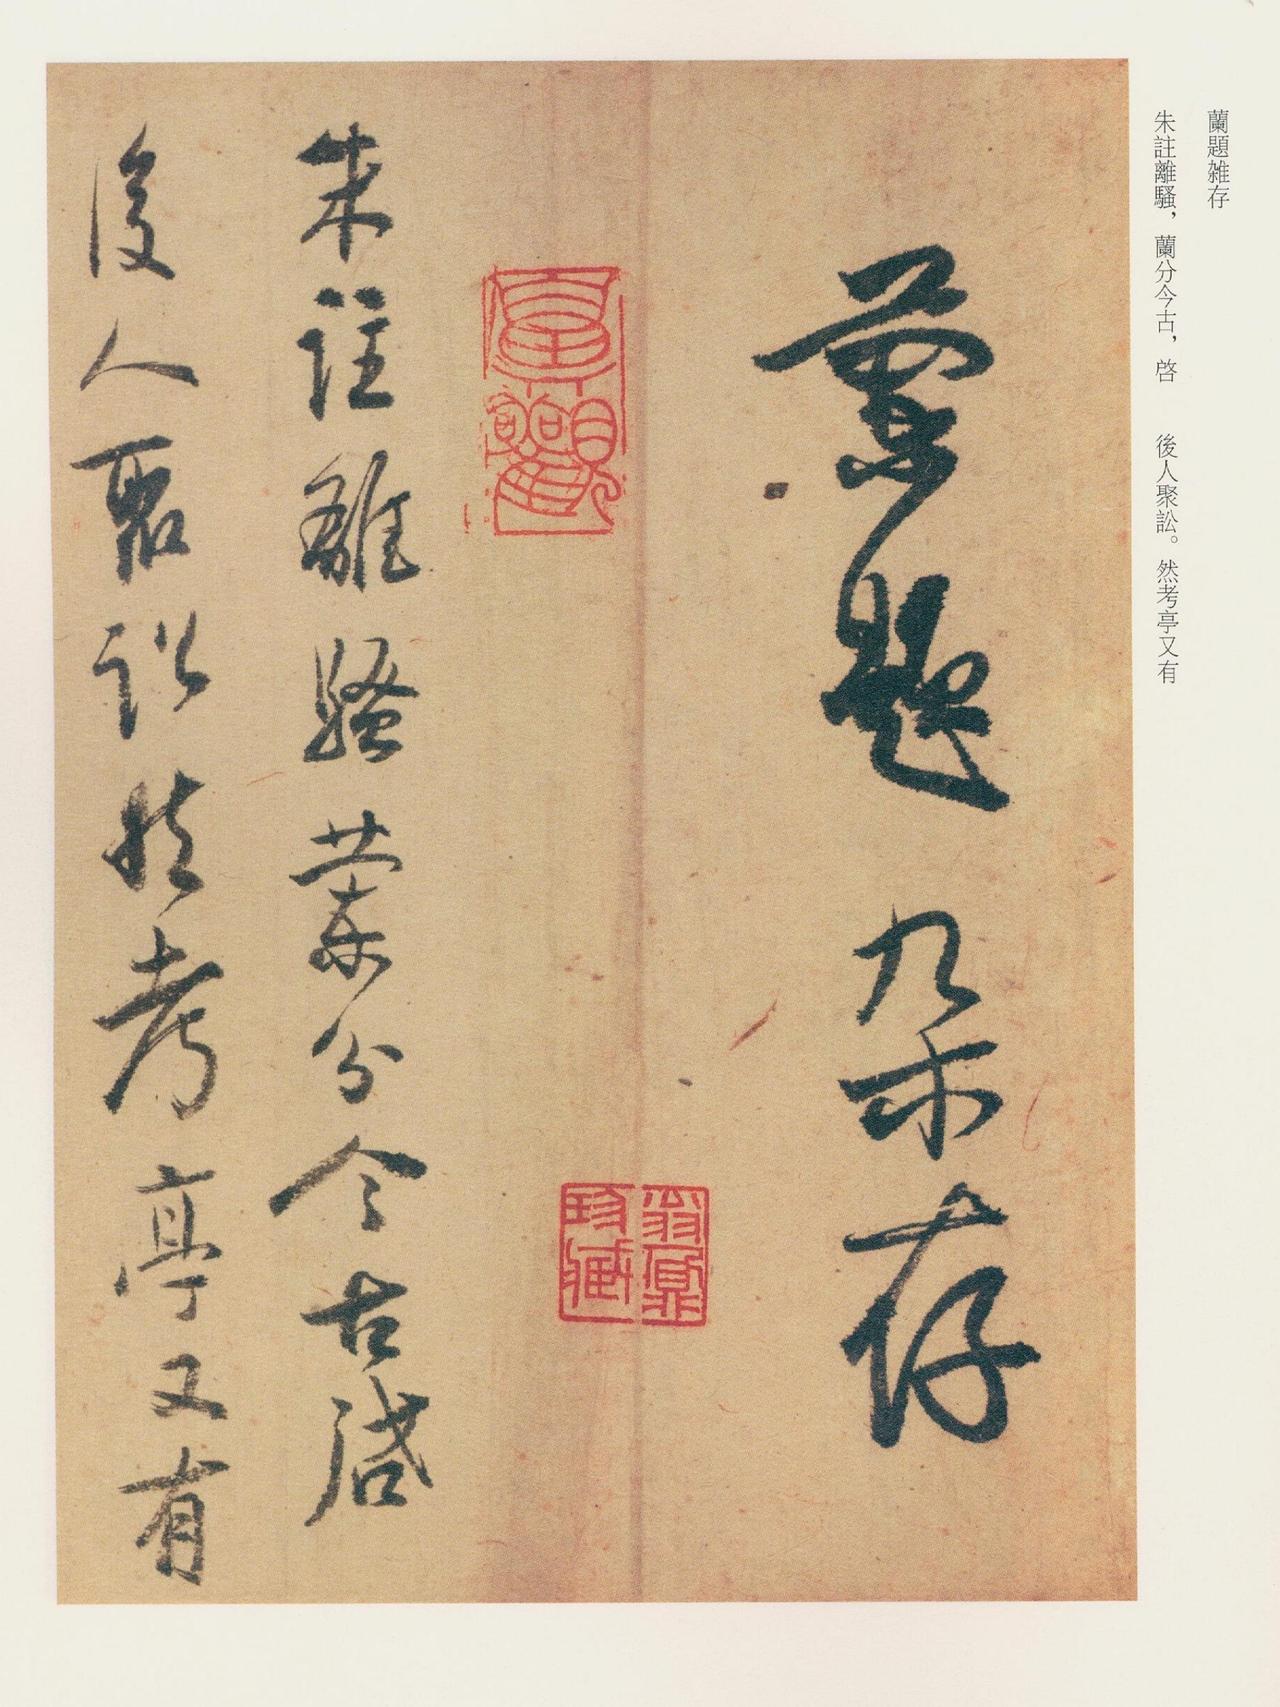 蘭題雑存
朱註離騷，蘭分今古，啓
後人聚訟。然考亭又有
蘭題雜存
朱註離騷蘭分今古啓
後人聚訟然考亭又有